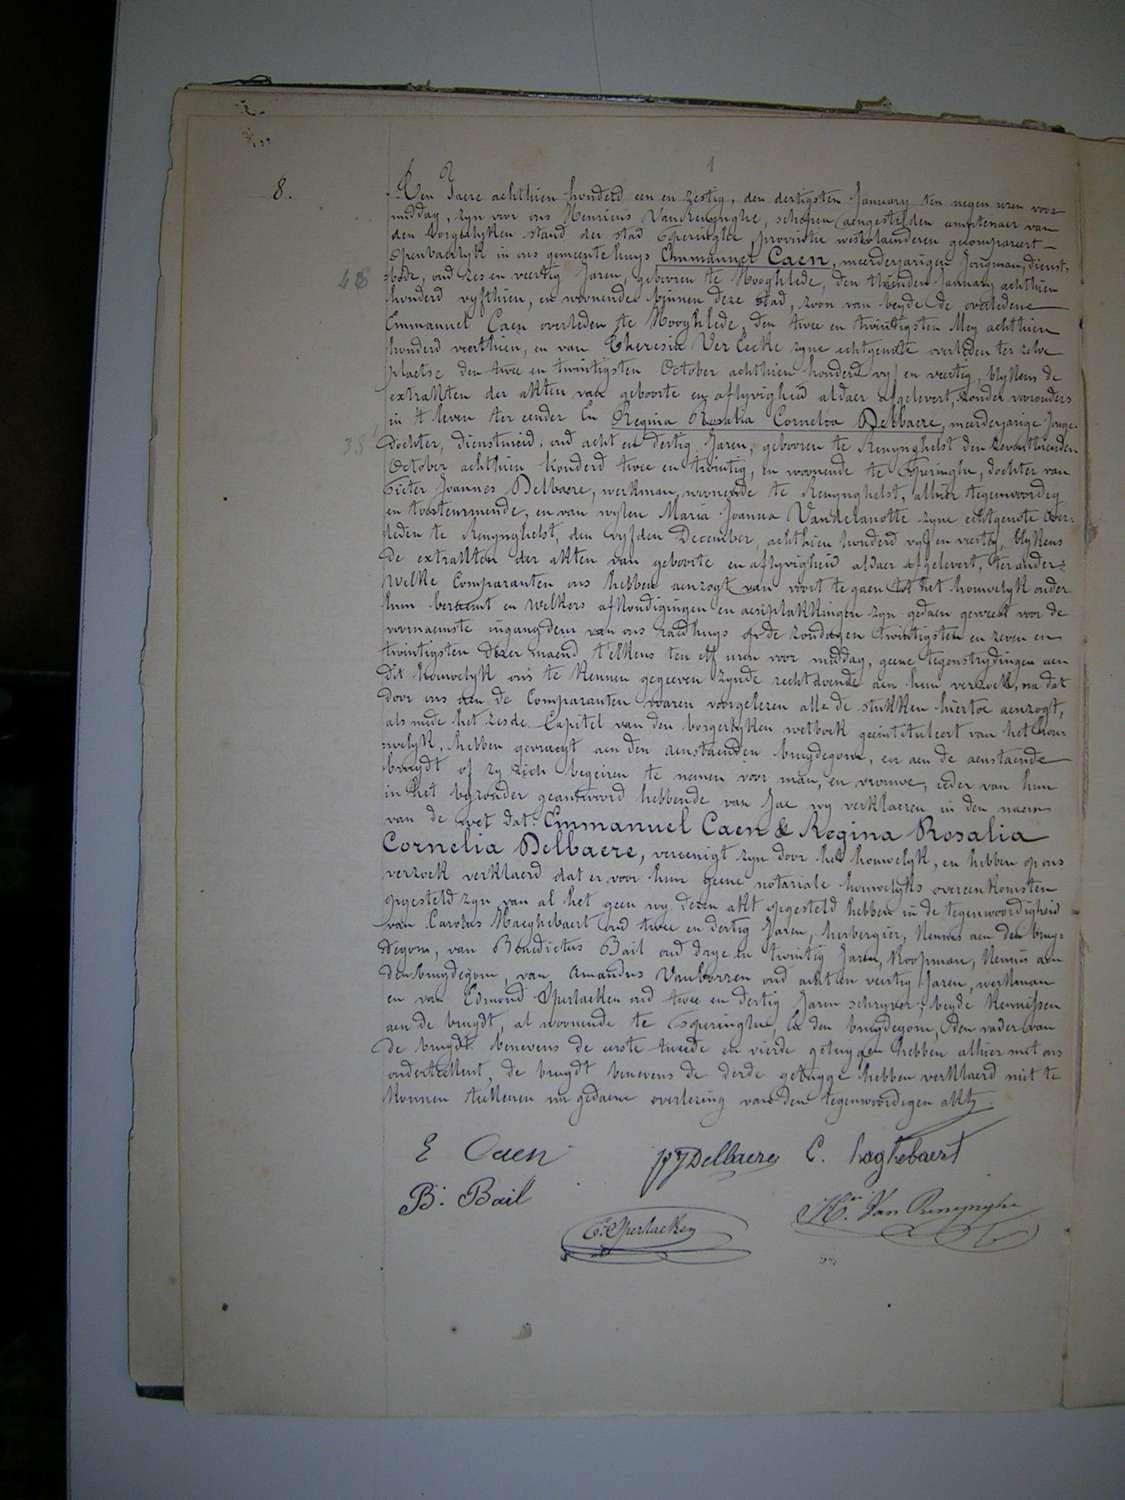 1
8.
Den Jaere achthien honderd een en zestig, den dertigsten January ten negen uren voor
middag, zyn voor ons Henricus Vanrenynghe, schepen aengestelden amptenaer van
den borgerlyken stand der stad Poperinghe, provintie westvlaenderen gecompareert
Openbaerlyk in ons gemeentehuys Emmanuel Caen, meerderjarigen Jongman, dienst-
46
bode, oud zes en veertig Jaren, gebooren te Hooghlede, den thienden January achthien
honderd vyfthien, en woonende binnen deze stad, zoon van beyde de overledene
Emmanuel Caen overleden te Hooghlede, den twee en twintigsten Mey achthien
honderd veerthien, en van Theresia Ver Eecke zyne echtgenote overleden ter zelve
plaetse den twee en twintigsten October achthien honderd vyf en veertig, blykens de
extrakten der akten van geboorte en aflyvigheid aldaer afgelevert, zonder voorouders
in 't leven ter eender En Regina Rosalia Cornelia Delbaere, meerderjarige Jonge
38
dochter, dienstmeid, oud acht en dertig Jaren, gebooren te Renynghelst den zeventhienden
October achthien honderd twee en twintig, en woonende te Poperinghe, dochter van
Pieter Joannes Delbaere, werkman, woonende te Renynghelst, alhier tegenwoordig
en toestemmende, en van wylen Maria Joanna Vandelanotte zyne echtgenote over-
leden te Renynghelst, den vyfden December, achthien honderd vyf en veertig, blykens
de extrakten der akten van geboorte en aflyvigheid aldaer afgelevert, ter ander-
Welke Comparanten ons hebben aenzogt van voort te gaen tot het houwelyk onder
hun beraemt en welkers afkondigingen en aenplakkingen zyn gedaen geweest voor de
voornaemste ingangdeur van ons raedhuys op de zondagen twintigsten en zeven en
twintigsten dezer maend t'elkens ten elf uren voor middag, geene tegenstrydingen aen
dit houwelyk ons te kennen gegeeven zynde rechtdoende aen hun verzoek, na dat
door ons aen de Comparanten waren voorgelezen alle de stukken hiertoe aenzogt,
als mede het zesde Capitel van den borgerlyken wetboek geintituleert van het hou-
welyk, hebben gevraegt aen den aenstaenden bruydegom, en aen de aenstaende
bruydt of zy zich begeiren te nemen voor man, en vrouwe, ieder van hun
in het byzonder geantwoord hebbende van Jae wy verklaeren in den naem
van de wet dat: Emmanuel Caen & Regina Rosalia
Cornelia Delbaere, vereenigt zyn door het houwelyk, en hebben op ons
verzoek verklaerd dat er voor hun geene notariale houwelyks overeenkomsten
opgesteld zyn van al het geen wy dezen akt opgesteld hebben in de tegenwoordigheid
van Carolus Haeghebaert oud twee en dertig Jaren, herbergier, Kennis aen den bruy-
degom, van Benedictus Bail oud drye en twintig Jaren, Koopman, Kennis aen
den bruydegom, van Amandus Vanborren oud acht en veertig Jaren, werkman
en van Edmond Sperlaeken oud twee en dertig Jaren schryver, beyde Kennissen
aen de bruydt, al woonende te Poperinghe, En den bruydegom, den vader van
de bruydt benevens de eerste tweede en vierde getuygen hebben alhier met ons
ondertekent, de bruydt benevens de derde getuyge hebben verklaerd niet te
Konnen teekenen na gedaene overlezing van den tegenwoordigen akt.
E Caen PJ Delbaere C. haghebaert
B. Bail
E. Sperlaeken
Hri Van Renynghe